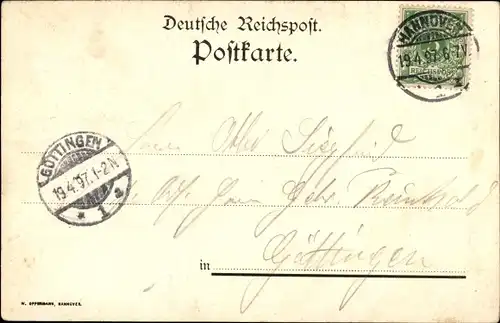 Deutsche Reichspost.
Postkarte.
HANNOVER
19.4.97.6-7N.
GÖTTINGEN
19.4.97.1-2N
* 1 a
Herrn Otto Siegfried
in Göttingen
W. OPPERMANN, HANNOVER.